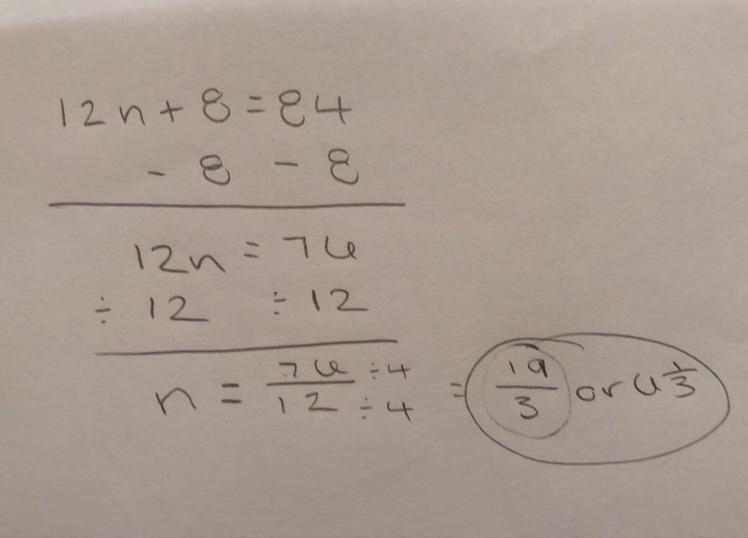 12n + 8 = 84
- 8 - 8
12n = 76
÷ 12 ÷ 12
n = 76/12 ÷4/÷4 = 19/3 or 6 1/3